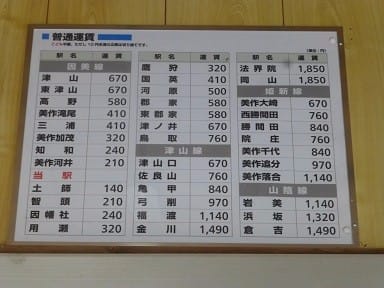 ■普通運賃
こども半額。ただし、10円未満の端数は切り捨てです。
(単位:円)
駅名 運賃
因美線
津山 670
東津山 670
高野 580
美作滝尾 410
三浦 410
美作加茂 320
知和 240
美作河井 210
当駅
土師 140
智頭 210
因幡社 240
用瀬 320
駅名 運賃
鷹狩 320
国英 410
河原 500
郡家 580
東郡家 580
津ノ井 670
鳥取 760
津山線
津山口 670
佐良山 760
亀甲 840
弓削 970
福渡 1,140
金川 1,490
駅名 運賃
法界院 1,850
岡山 1,850
姫新線
美作大崎 670
西勝間田 760
勝間田 840
院庄 760
美作千代 840
美作追分 970
美作落合 1,140
山陰線
岩美 1,140
浜坂 1,320
倉吉 1,490